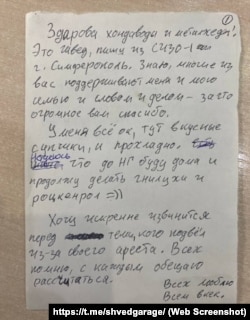 1
Здарова хондаводы и митинхеды!
Это швед, пишу из СИЗО-1
г. Симферополь. Знаю, многие из
вас поддерживают меня и мою
семью и словом и делом - за что
огромное вам спасибо.
У меня всё ок, тут вкусные
сушняки, и прохладно.
что до НГ буду дома и
продолжу делать гнилухи и
рокценрол =))
Хочу искренне извинится
перед теми, кого подвёл
из-за своего ареста. Всех
помню, с каждым обещаю
рассчитаться.
Всех люблю
Всем
https://t.me/shvedgarage/ (Web Screenshot)